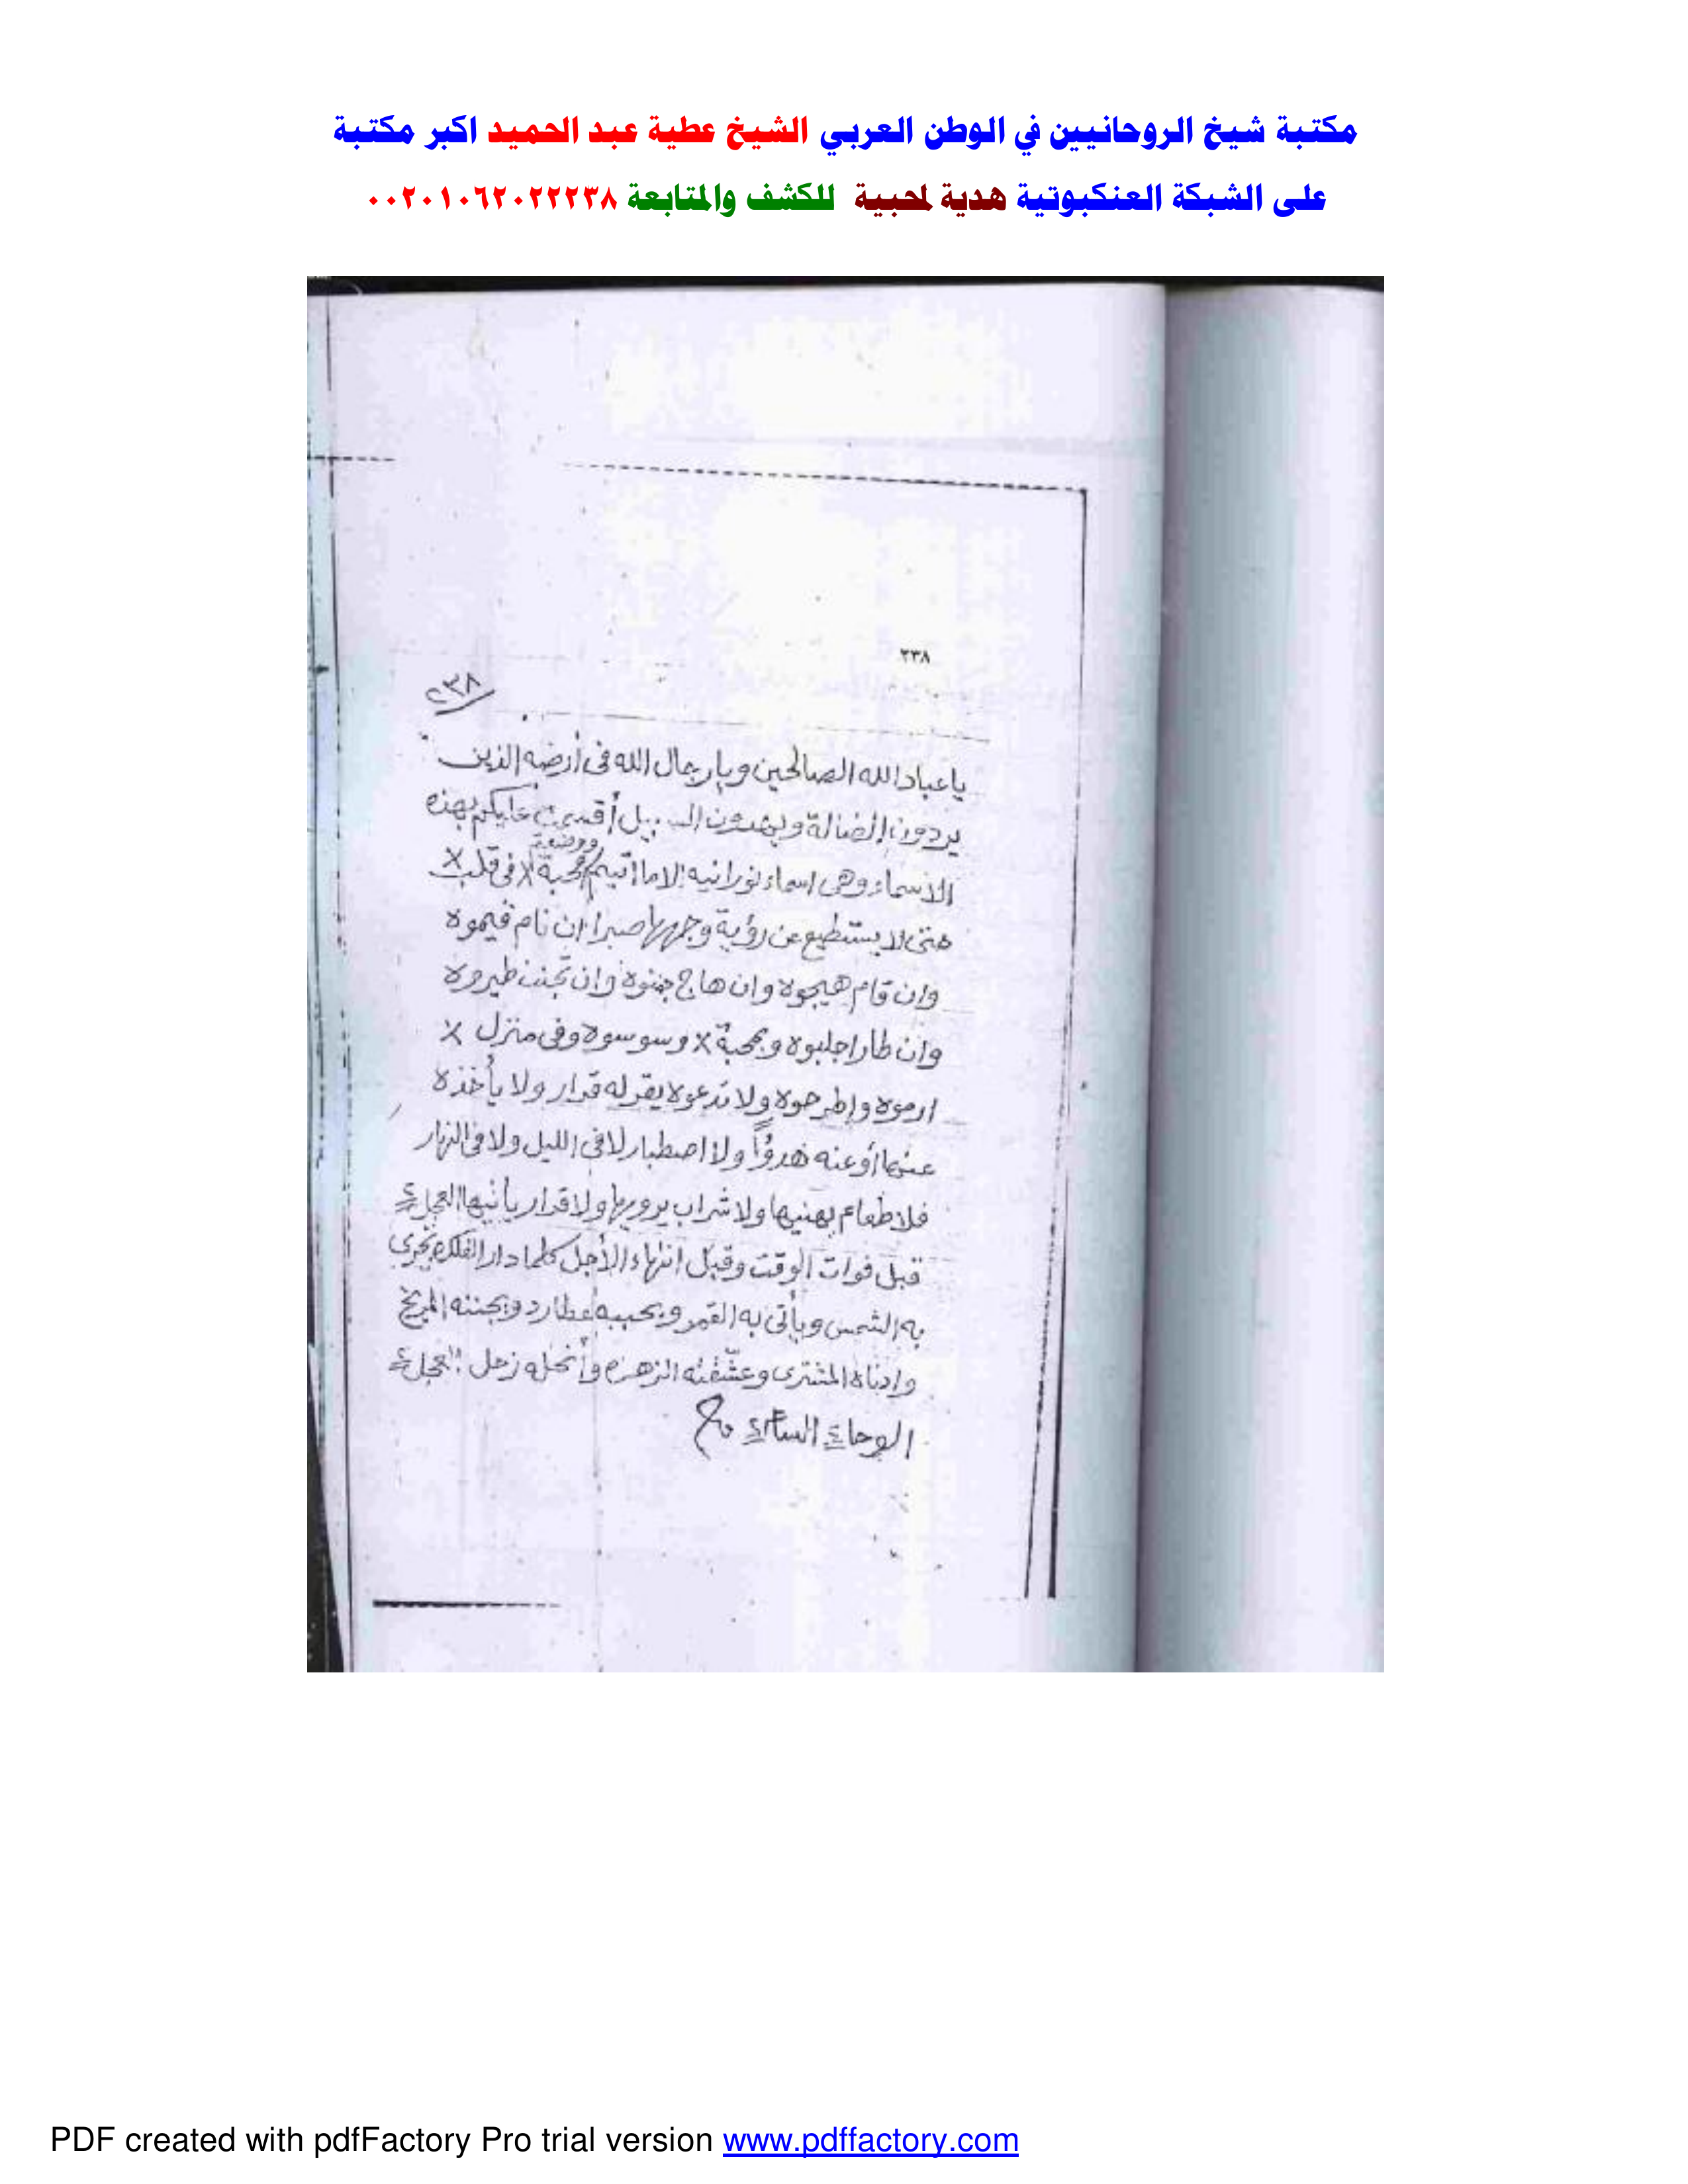 مكتبة شيخ الروحانيين في الوطن العربي الشيخ عطية عبد الحميد اكبر مكتبة
على الشبكة العنكبوتية هدية لمحبية للكشف والمتابعة ٠٠٢٠١٠٦٢٠٢٢٢٣٨
٢٣٨
٢٣٨
ياعباد الله الصالحين ويارجال الله فى أرضه الذين
يردون الضالة ويهدون السبيل أقسمت عليكم بهذه
الاسماء وهى اسماء نورانيه الا ما اتيتم بمحبة x فى قلب x
حتى لا يستطيع عن رؤية وجهها صبرا ان نام فيموه
وان قام هيجوه وان هاج جننوه وان تجنن طيروه
وان طار اجلبوه وبمحبة x وسوسوه وفى منزل x
ارموه واطرحوه ولا تدعوه يقر له قرار ولا يأخذه
عنها أوعنه هدوُأً ولا اصطبار لا فى الليل ولا فى النهار
فلا طعام يهنيها ولا شراب يرويها ولا قرار يأتيها العجل ٤
قبل فوات الوقت وقبل انتهاء الأجل كلما دار الفلك تجرى
به الشمس ويأتى به القمر ويحببه عطارد ويجننه المريخ
وادناه المشترى وعشقته الزهره وأنحله زحل العجل ٤
الوحا ٤